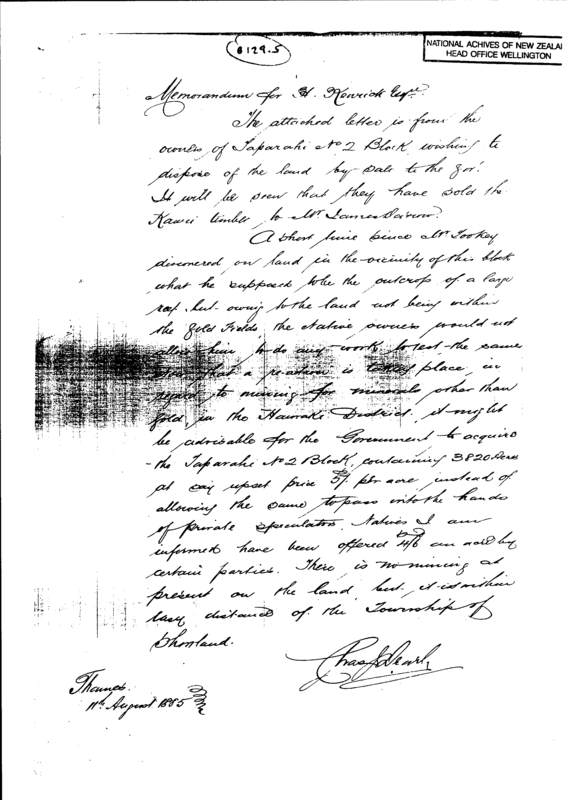 B129.5
NATIONAL ACHIVES OF NEW ZEALA
HEAD OFFICE WELLINGTON
Memorandum for H. Kenrick Esqre
The attached letter is from the
owners of Taparahi No 2 Block wishing to
dispose of the land by sale to the Gov.
It will be seen that they have sold the
Kauri timber to Mr James
A short time since Mr Tookey
discovered on land in the vicinity of this block
what he supposed to be the outcrop of a large
reef but owing to the land not being within
the Gold Fields the Native owners would not
allow him to do any work to test the same
that a is place, in
regard to mining for minerals other than
Gold, in the Hauraki District, it might
be advisable for the Government to acquire
the Taparahi No 2 Block, containing 3820 acres
at say upset price 5/- per acre instead of
allowing the same to pass into the hands
of private speculators. Natives I am
informed have been offered 4/6 an acre by
certain parties. There is no mining at
present on the land, but it is within
easy distance of the Township of
Shortland.
Thames.
11th August 1885